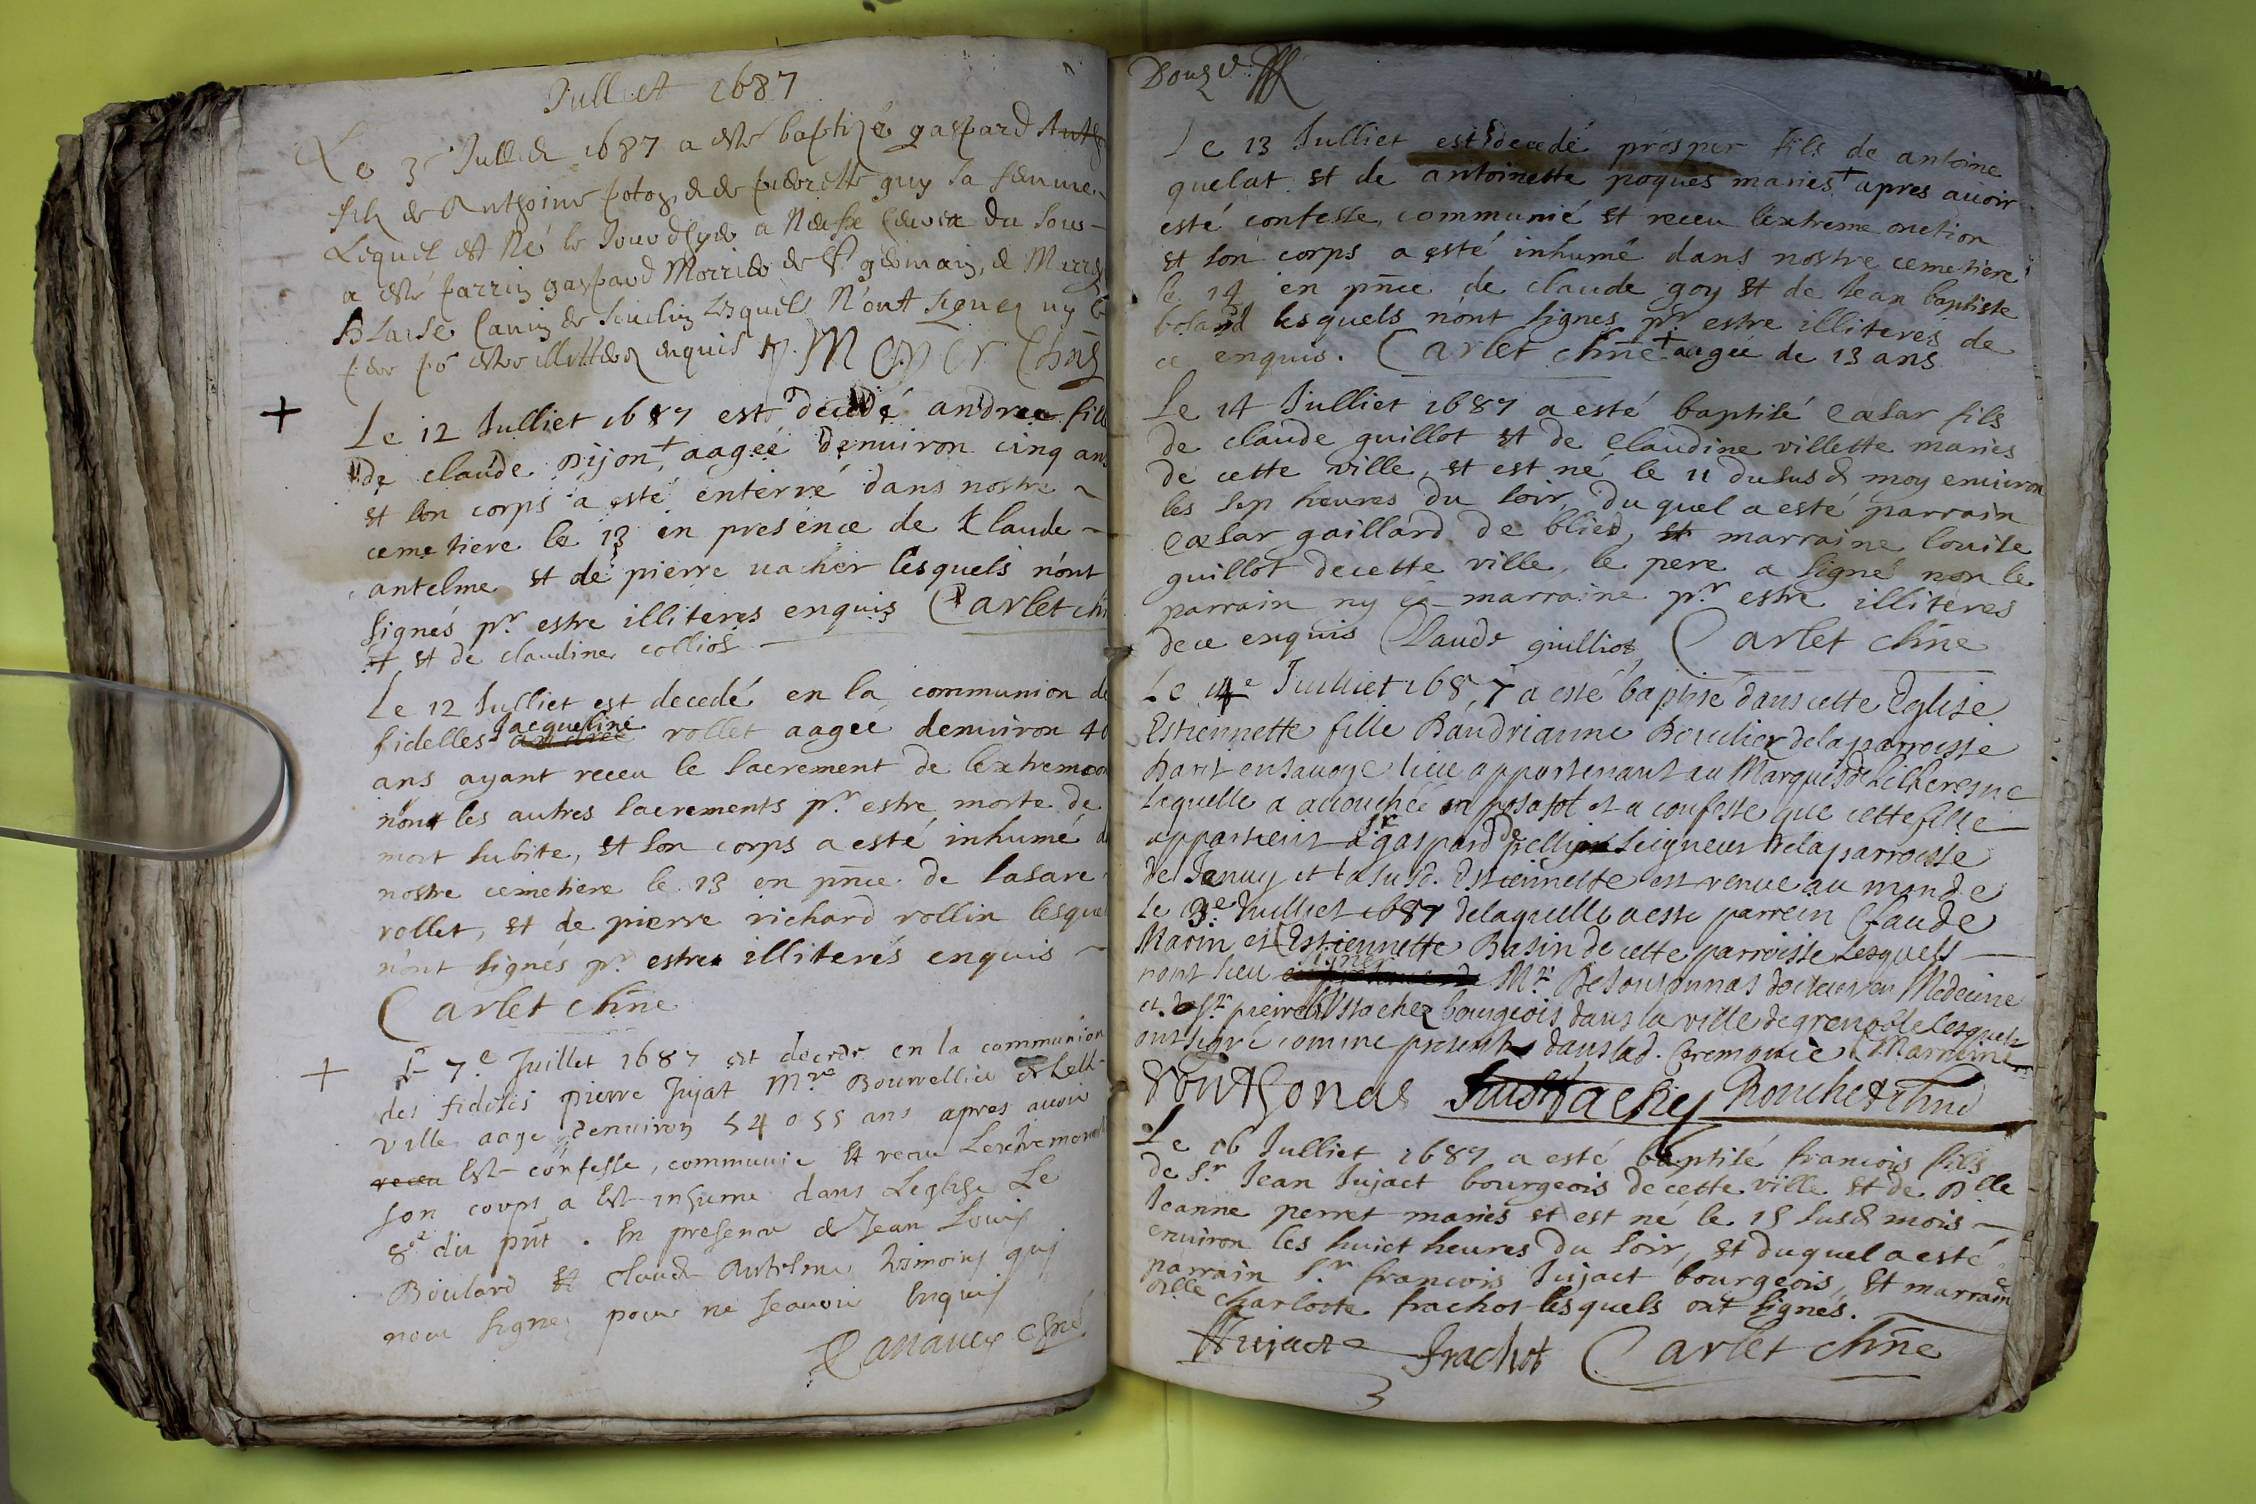 Julliet 1687
Le 3e Julliet 1687 a esté baptizé gaspard
filz de Anthoine potoz, et de pierrette guy sa femme
Lequel est né le Jour d'hyer a Neufz heures du soir
a esté parrin gaspard Morrier de St germain, & Marr
Blaise Canin de lesquels n'ont signez ny le
per po estre illitterez enquis Moyer Chne
+ Le 12 Julliet 1687 est decedé andree fille
de claude Dijon,+ aagée denuiron cinq ans
et son corps a esté enterré dans nostre
cemetiere le 13 en presence de Klaude
antelme et de pierre uacher lesquels n'ont
signés pr. estre illiteres enquis Carlet chne
+ et de claudine colliot
Le 12 Julliet est decedé en la communion de
Jacqueline
fidelles andree rollet aagee denuiron 40
ans ayant receu le sacrement de l'extremeon
non les autres sacrements pr. estre morte de
mort subite, et son corps a esté inhumé d
nostre cemetiere le 13 en pnce de lasare
rollet, et de pierre richard rollin lesquel
n'ont signés pr. estre illiterés enquis
Carlet chne
+ Le 7e Juillet 1687 est decede en la communion
des fidelis pierre Jujat Mre Bourrellier de cette
ville aage denuiron 54 o 55 ans apres auoir
receu Esté confesse, communie et receu Lextremont
son corps a Esté inhume dans Leglise Le
8e du pnt. En presence de Jean Louis
Boulard et claude Antelme temoins qui
nont signez pour ne scauoir Enquis
chne
Le 13 Julliet est decedé prosper fils de antoine
quelat et de antoinette poques maries + apres auoir
esté confesse, communié et receu l'extreme onction
et son corps a esté inhumé dans nostre cemetiere
le 14 en pnce de claude goy et de Jean baptiste
boland lesquels n'ont signes pr estre illiteres de
ce enquis. Carlet chne + aagée de 13 ans
Le 14 Julliet 1687 a esté baptisé Cæsar fils
de claude guillot et de Claudine villette maries
de cette ville, et est né le 11 du susd moy enuiron
les sep heures du soir, duquel a esté parrain
Cæsar gaillard de blied, et marraine louise
guillot de cette ville, le pere a signé non le
parrain ny la marraine pr estre illiteres
de ce enquis Claude guilliot, Carlet chne
Le 14e Juilliet 1687 a esté baptisé dans cette Eglise
Estiennette fille Bandrianne Bouclier de la parroisse
en sauoye lieu appartenant au Marquis de
laquelle a accouchée en posasol et a confesse que cette fille
appartient a Sr gaspard de seigneur de la parroisse
de Januy et la susd. Estiennette est venue au monde
le 13e Julliet 1687 de laquelle a esté parrein Claude
Marin et Estiennette Basin de cette parroisse Lesquels
nont sceu signer Mr. De docteur en Medecine
et Sr pierre Eustachez bourgeois dans la ville de grenoble Lesquels
ont signé comme presents dans lad. Ceremonie
Eustachez Bouchet chne
Le 16 Julliet 1687 a esté baptisé francois fils
de Sr Jean Jujact bourgeois de cette ville et de Dlle
Jeanne perret maries et est né le 15 susd mois
enuiron les huict heures du soir, et duquel a esté
parrain Sr francois Jujact bourgeois, et marraine
Dlle charlotte frachot lesquels ont signés.
Jujact frachot Carlet chne